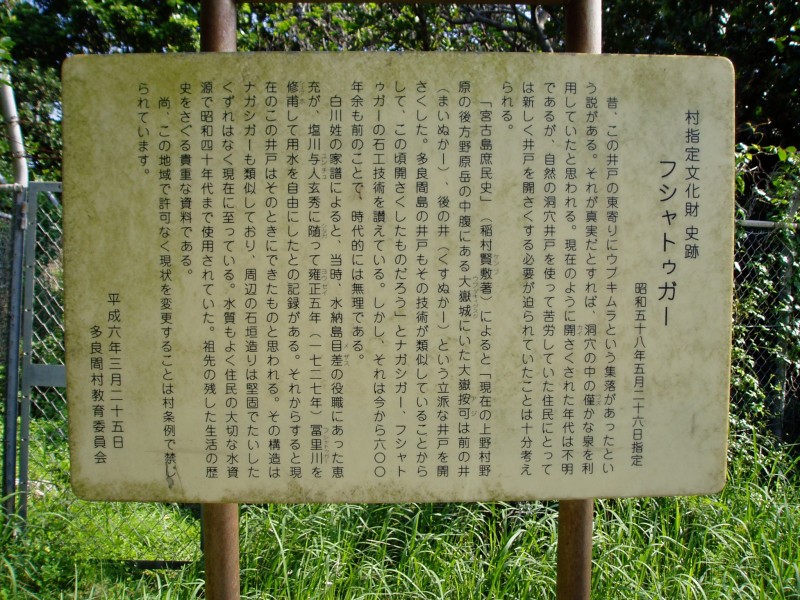 村指定文化財 史跡
フシャトゥガー
昭和五十八年五月二十六日指定
昔、この井戸の東寄りにウプキムラという集落があったとい
う説がある。それが真実だとすれば、洞穴の中の僅かな泉を利
用していたと思われる。現在のように開さくされた年代は不明
であるが、自然の洞穴井戸を使って苦労していた住民にとって
は新しく井戸を開さくする必要が迫られていたことは十分考え
られる。
「宮古島庶民史」(稲村賢敷著)によると「現在の上野村野
原の後方野原岳の中腹にある大嶽城にいた大嶽按司は前の井
(まいぬかー)、後の井(くすぬかー)という立派な井戸を開
さくした。多良間島の井戸もその技術が類似していることから
して、この頃開さくしたものだろう」とナガシガー、フシャト
ゥガーの石工技術を讃えている。しかし、それは今から六〇〇
年余も前のことで、時代的には無理である。
白川姓の家譜によると、当時、水納島目差の役職にあった恵
充が、塩川与人玄秀に随って雍正五年(一七二七年)冨里川を
修甫して用水を自由にしたとの記録がある。それからすると現
在のこの井戸はそのときにできたものと思われる。その構造は
ナガシガーも類似しており、周辺の石垣造りは堅固でたいした
くずれはなく現在に至っている。水質もよく住民の大切な水資
源で昭和四十年代まで使用されていた。祖先の残した生活の歴
史をさぐる貴重な資料である。
尚、この地域で許可なく現状を変更することは村条例で禁じ
られています。
平成六年三月二十五日
多良間村教育委員会